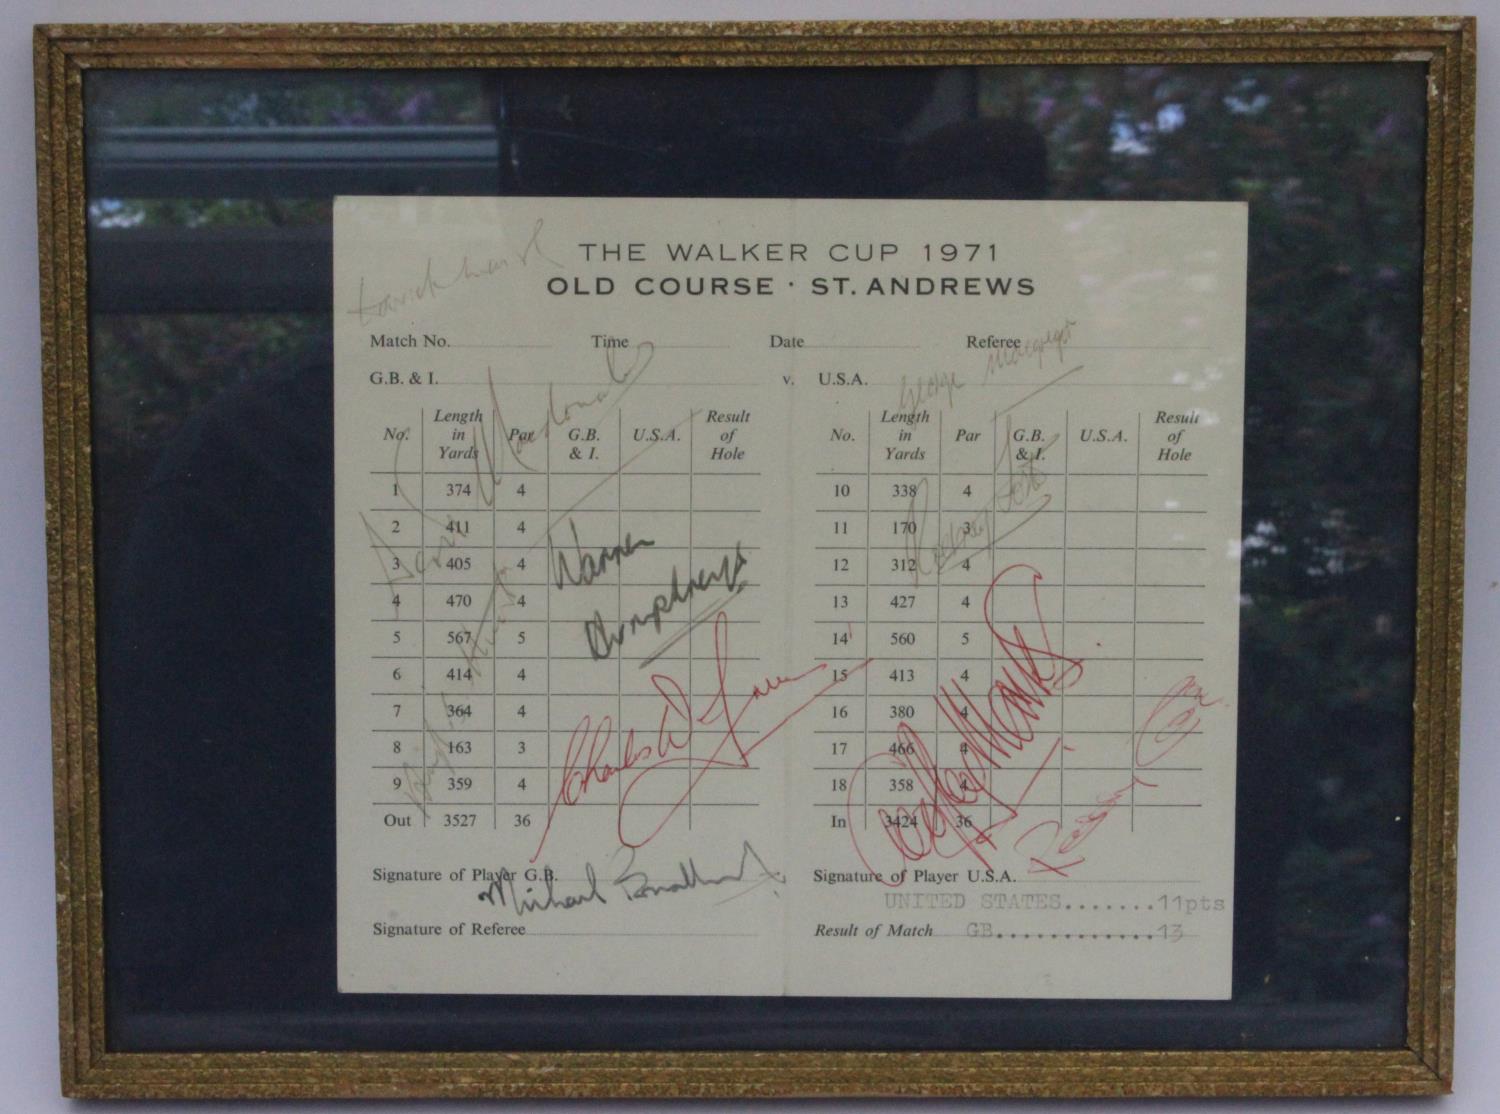 THE WALKER CUP 1971
OLD COURSE · ST. ANDREWS
Match No. Time Date Referee
George Macgregor
G.B. & I. v. U.S.A.
Scott Macdonald
No. Length in Yards Par G.B. & I. U.S.A. Result of Hole
1 374 4
2 411 4
3 405 4
4 470 4
5 567 5
6 414 4
7 364 4
8 163 3
9 359 4
Out 3527 36
Warren Humphreys
Charles W Green
No. Length in Yards Par G.B. & I. U.S.A. Result of Hole
10 338 4
11 170 3
12 312 4
13 427 4
14 560 5
15 413 4
16 380 4
17 466 4
18 358 4
In 3424 36
Rodney Foster
Geoffrey Marks
Roddy Carr
Signature of Player G.B. Signature of Player U.S.A.
Michael Bonallack
UNITED STATES.......11pts
Signature of Referee Result of Match GB.............13